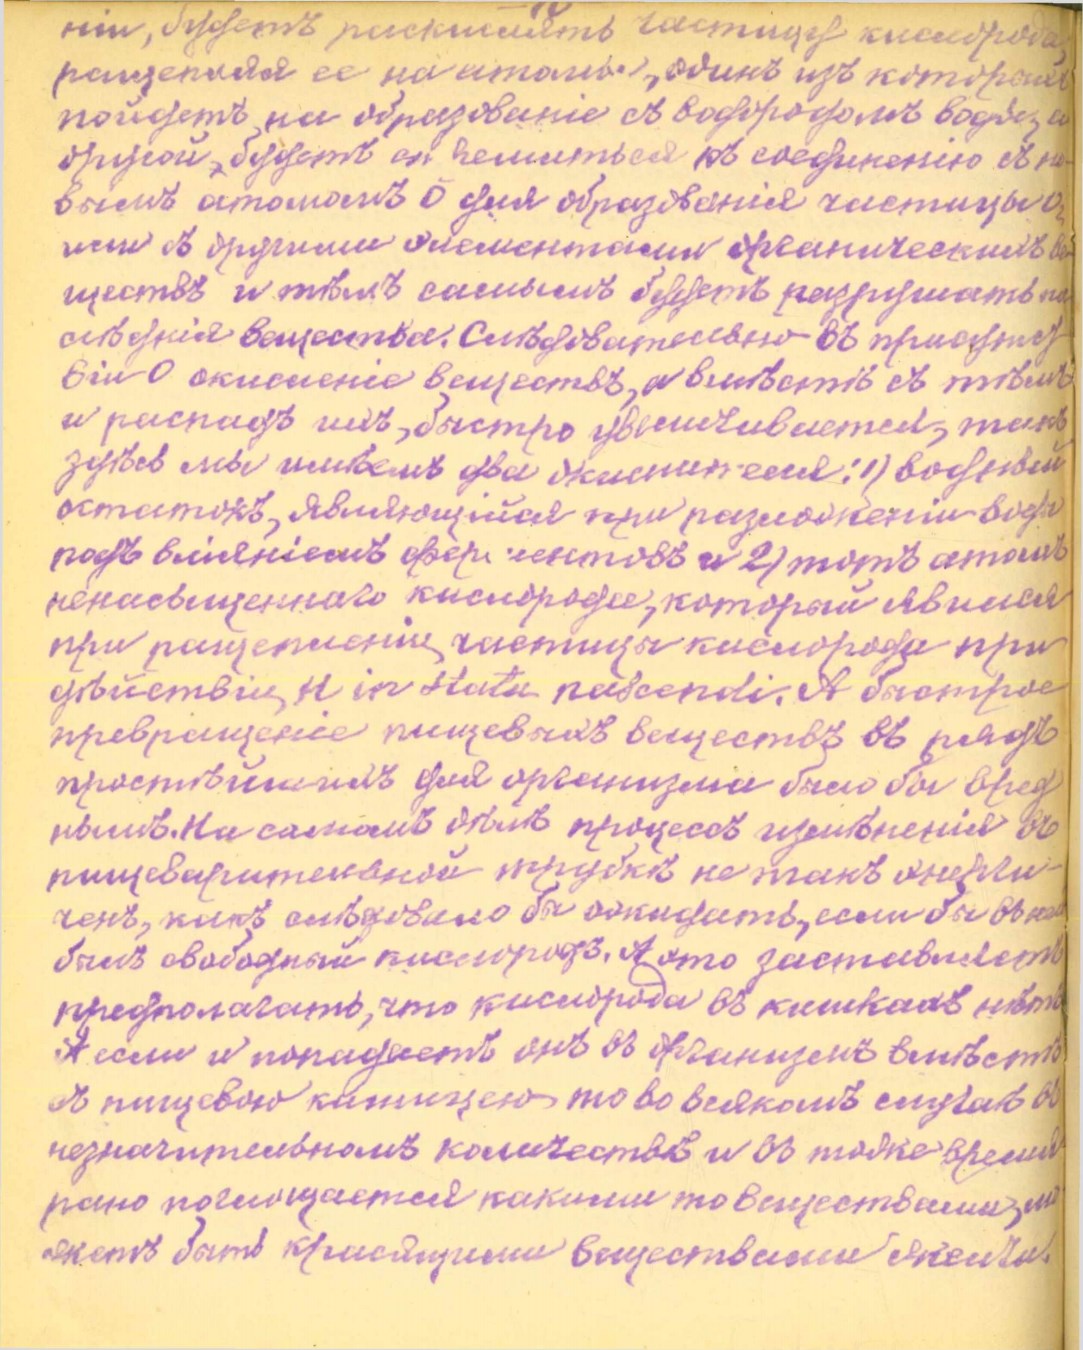 ніи, будетъ раскислять частицу кислорода,
ращепляя ее на атомы, одинъ изъ которыхъ
пойдетъ на образованіе съ водородомъ воды, а
другой, будетъ стремиться къ соединенію съ но-
вымъ атомомъ О для образованія частицы О₂
или съ другими элементами органическихъ ве-
ществъ и тѣмъ самымъ будетъ разрушать по
слѣднія вещества. Слѣдовательно въ присутст
віи О окисленіе веществъ, а вмѣстѣ съ тѣмъ
и распадъ ихъ, быстро увеличивается, такъ
здѣсь мы имѣемъ два окислителя: 1) водный
остатокъ, являющійся при разложеніи воды
подъ вліяніемъ ферментовъ и 2) тотъ атомъ
ненасыщеннаго кислорода, который явился
при ращепленіи частицы кислорода при
дѣйствіи H in statu nascendi. А быстрое
превращеніе пищевыхъ веществъ въ рядъ
простѣйшихъ для организма было бы вред
нымъ. На самомъ дѣлѣ процессъ измѣненія въ
пищеварительной трубкѣ не такъ энерги-
ченъ, какъ слѣдовало бы ожидать, если бы въ ней
былъ свободный кислородъ. А это заставляетъ
предполагать, что кислорода въ кишкахъ нѣтъ
А если и попадаетъ онъ въ организмъ вмѣстѣ
съ пищевою кашицею то во всякомъ случаѣ въ
незначительномъ количествѣ и въ тоже время
рано поглощается какими то веществами, мо
жетъ быть красящими веществами желчи.